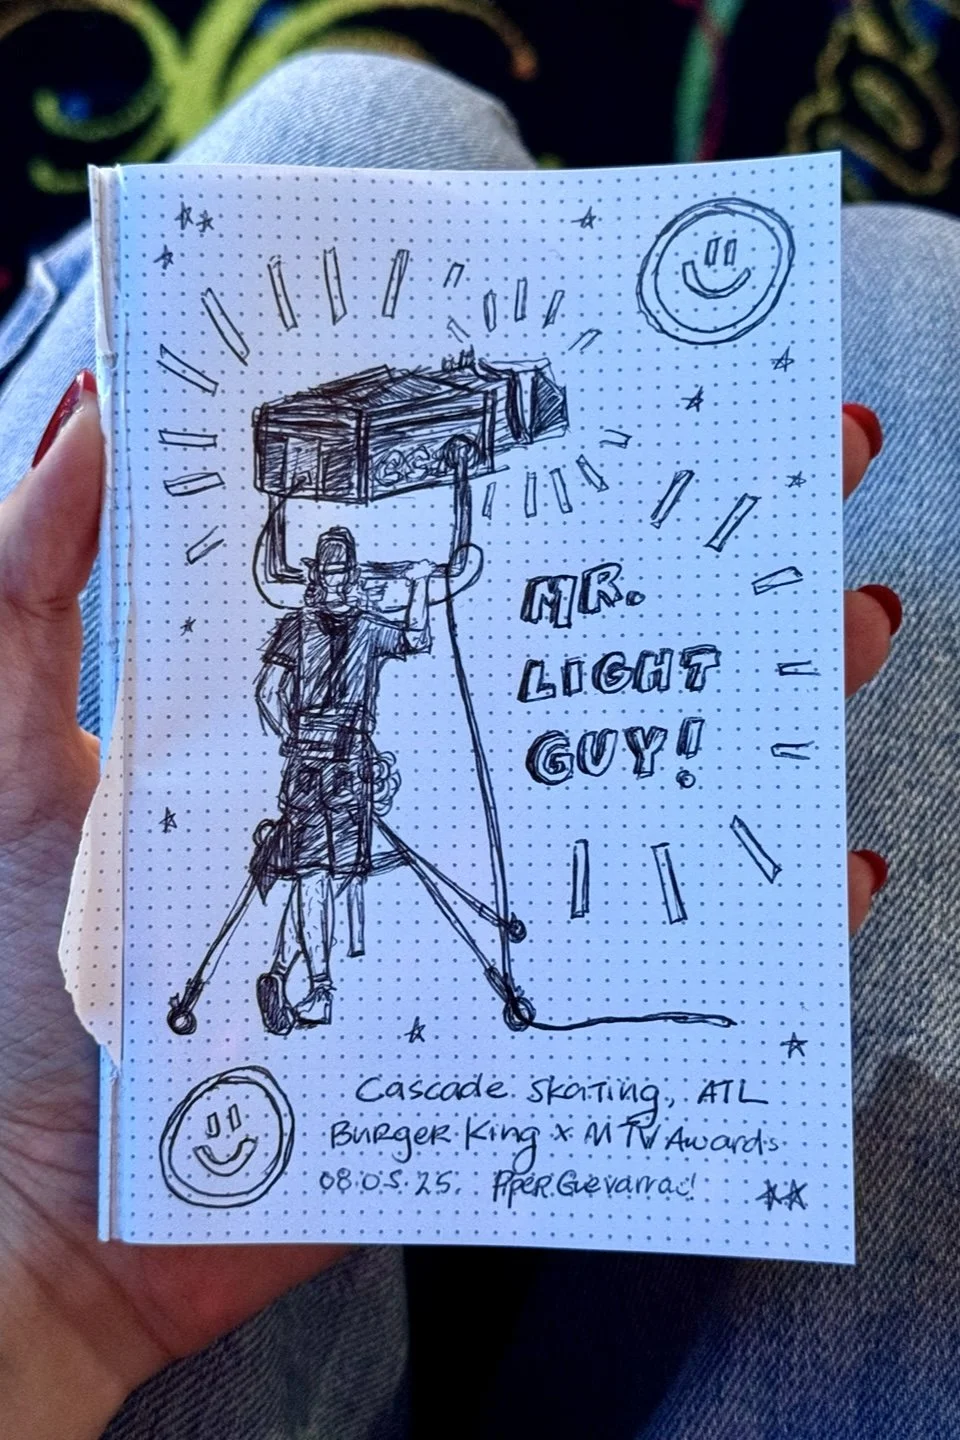 MR.
LIGHT
GUY!
Cascade Skating, ATL
Burger King x MTV Awards
08.05.25. Piper Guevarra!